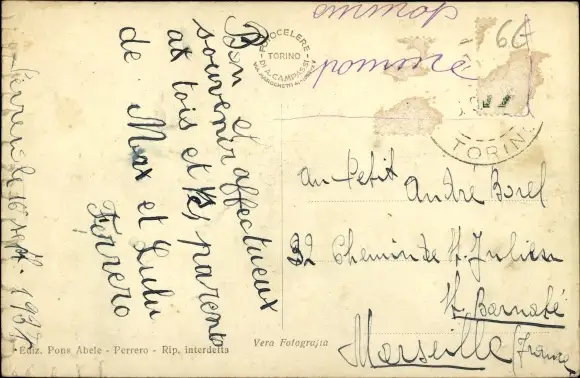 Bon et
souvenir affectueux
at tois et tes parents
de Max et Lulu
Ferrero
FOTOCELERE
TORINO
DI A. CAMPASSI
pomme
pommé
TORIN
au Petit André Borel
32 Chemin de St. Julien
St. Barnabé
Marseille (France
Ediz. Pons Abele - Perrero - Rip. interdetta
Vera Fotografia